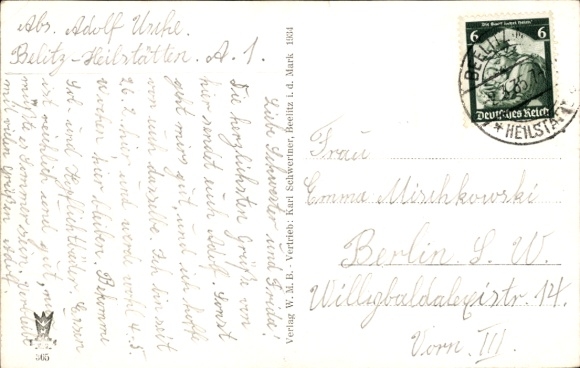 Abs. Adolf
Belitz-Heilstätten. A. 1.
Liebe Schwester und Frieda!
Die herzlichsten Grüße von
hier sendet euch Adolf. Sonst
geht mirs gut, und ich hoffe
von euch dasselbe. Ich bin seit
26.2. hier und werde wohl 4-5
Wochen hier bleiben. Bekomme
Sol und Essen
ist reichlich und gut, nur
müßte es Sommer sein.
mit vielen Grüßen Adolf.
365
Verlag W. M. B. - Vertrieb: Karl Schwertner, Beelitz i. d. Mark 1934
Die Saar kehrt heim!
6 6
Deutsches Reich
BEELITZ
* HEILSTÄTTEN
Frau
Emma Mischkowski
Berlin. S. W.
Willibaldalexistr. 14.
Vorn. III.